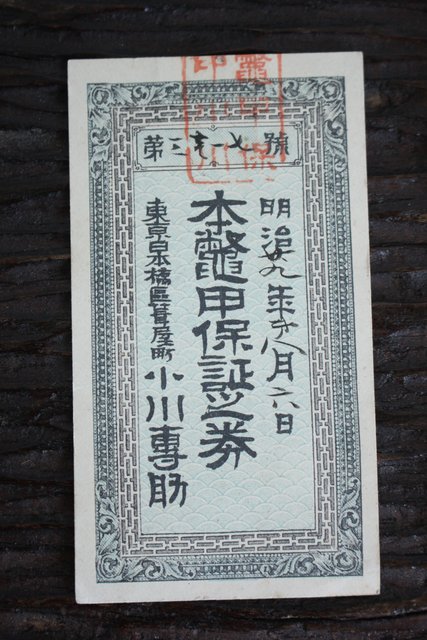 第三 一七號
明治廿九年 八月六日
本鼈甲保証之券
東京日本橋區葺屋町 小川專助
鼈甲保